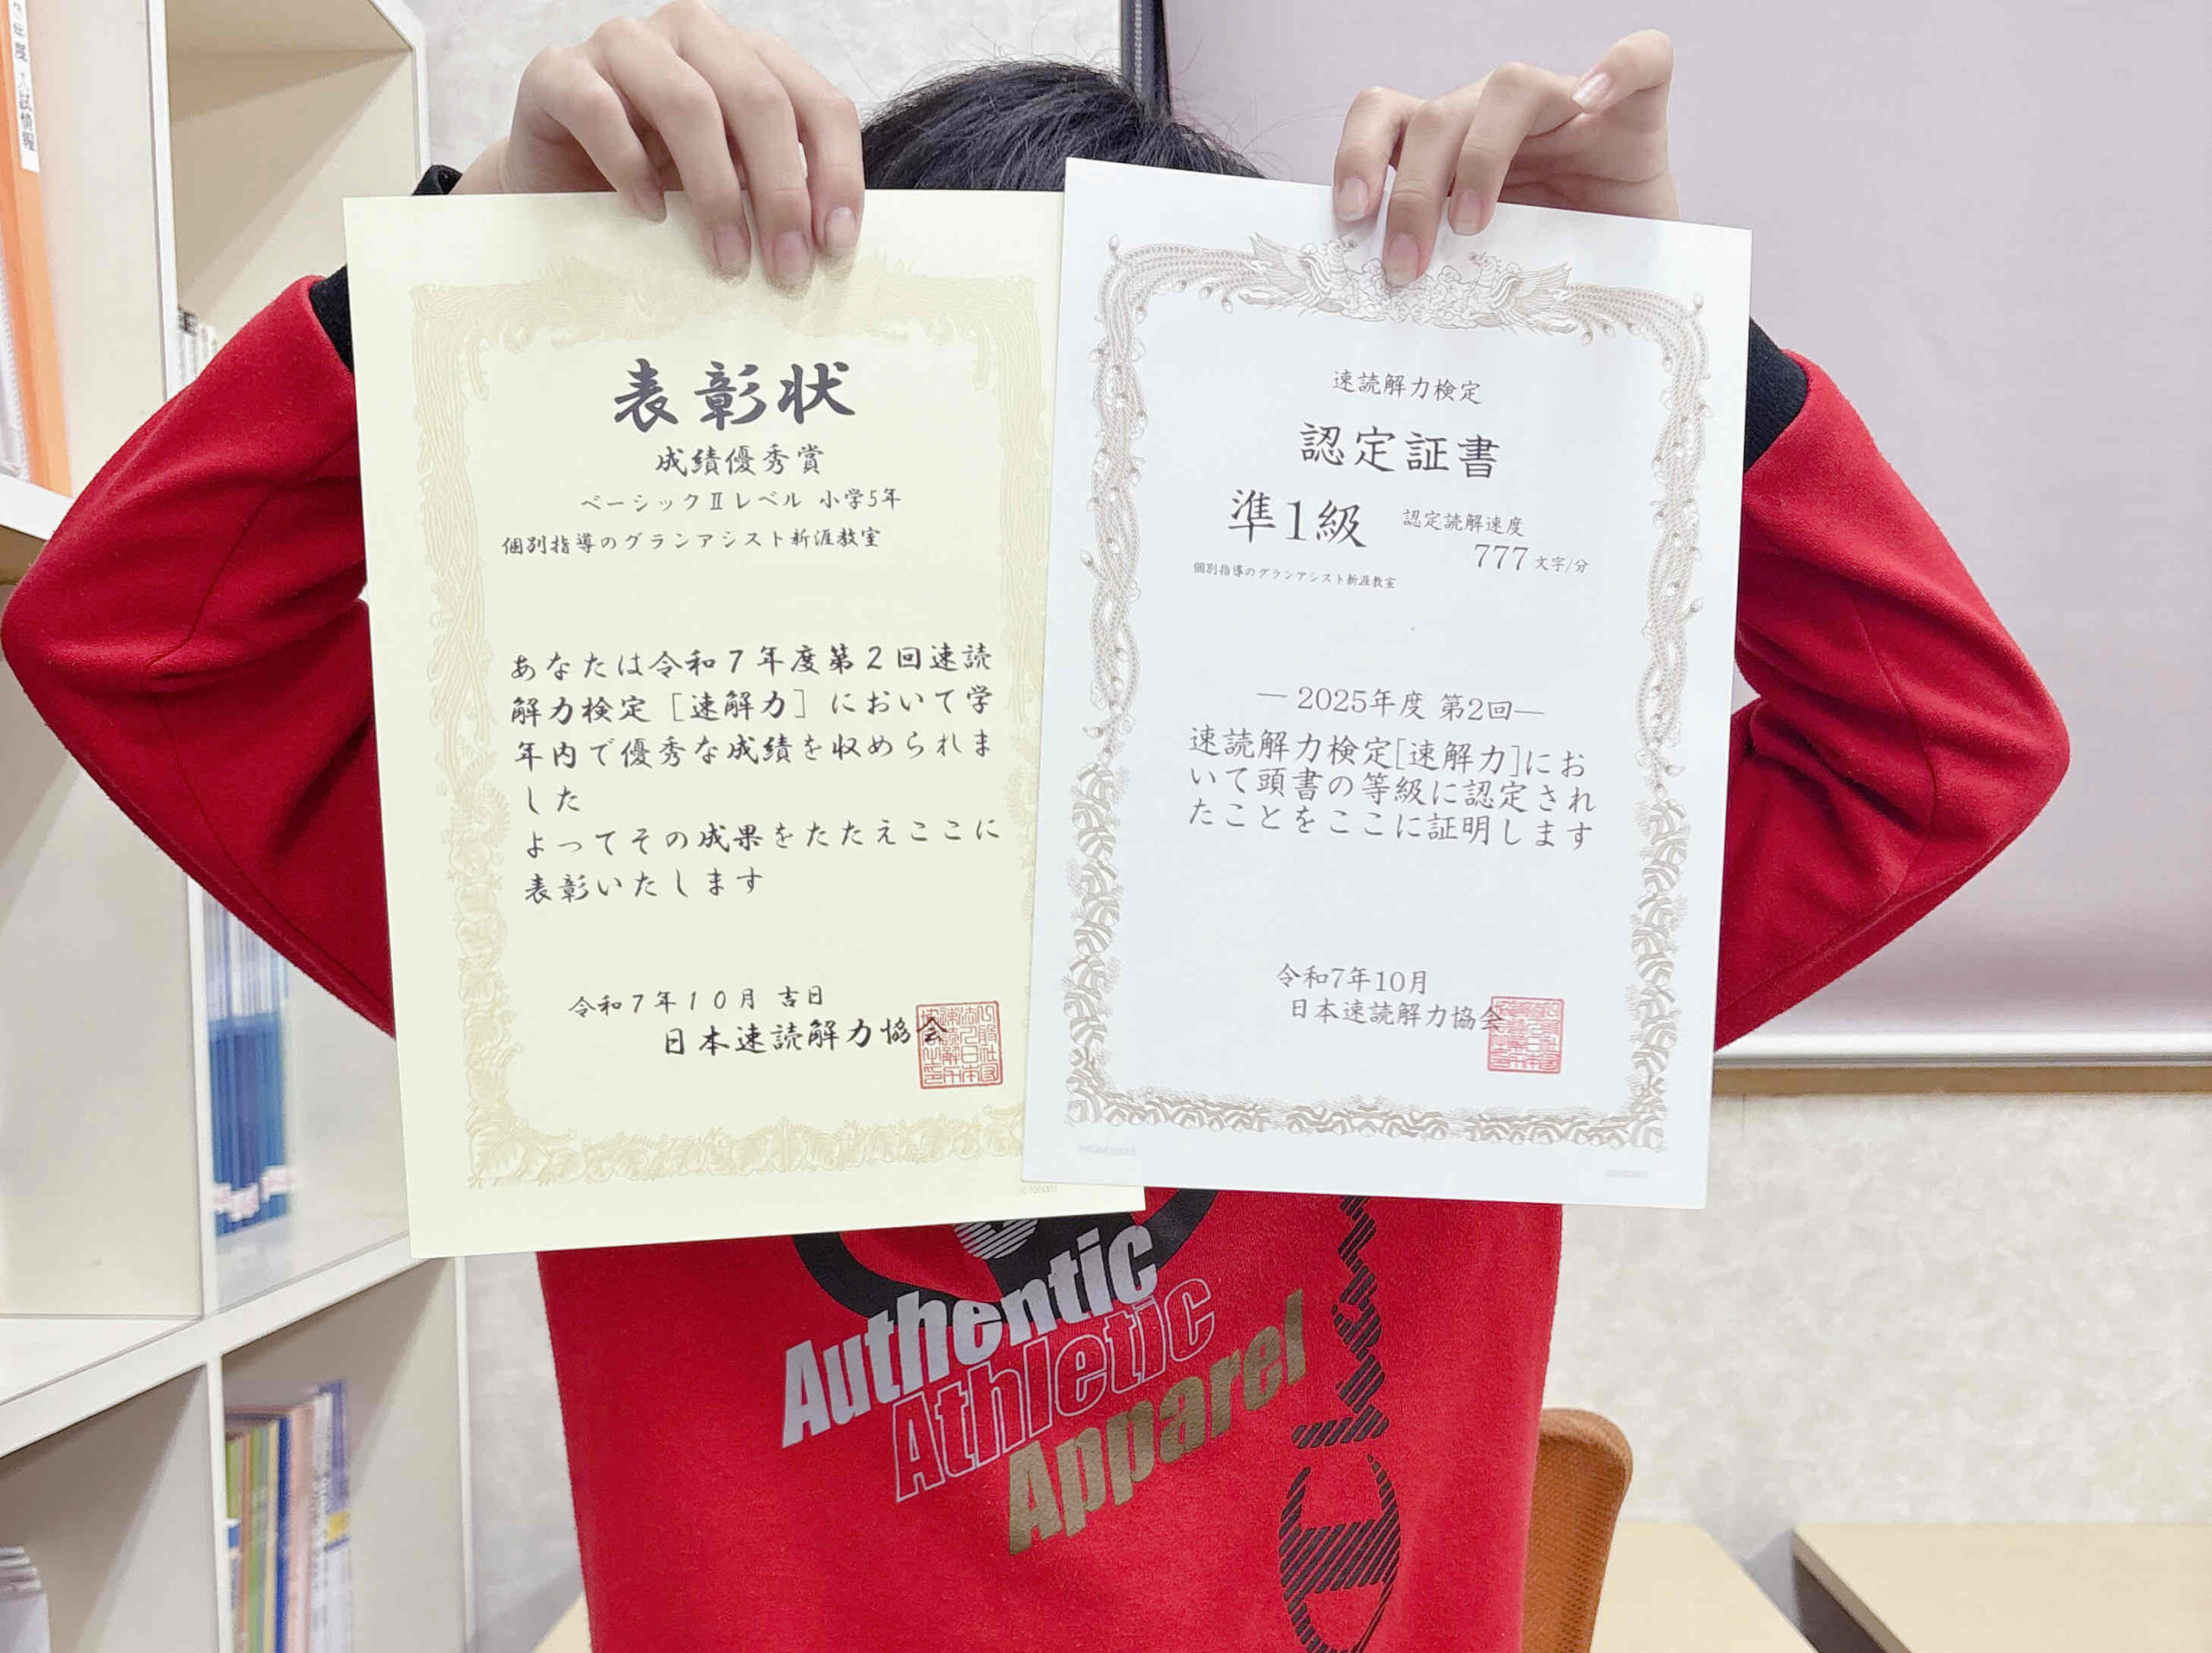 表彰状
成績優秀賞
ベーシックⅡレベル 小学5年
個別指導のグランアシスト新涯教室
あなたは令和7年度第2回速読
解力検定［速解力］において学
年内で優秀な成績を収められま
した
よってその成果をたたえここに
表彰いたします
令和7年10月 吉日
日本速読解力協会
速読解力検定
認定証書
準1級 認定読解速度
777文字/分
個別指導のグランアシスト新涯教室
― 2025年度 第2回―
速読解力検定[速解力]にお
いて頭書の等級に認定され
たことをここに証明します
令和7年10月
日本速読解力協会
Authentic
Athletic
Apparel